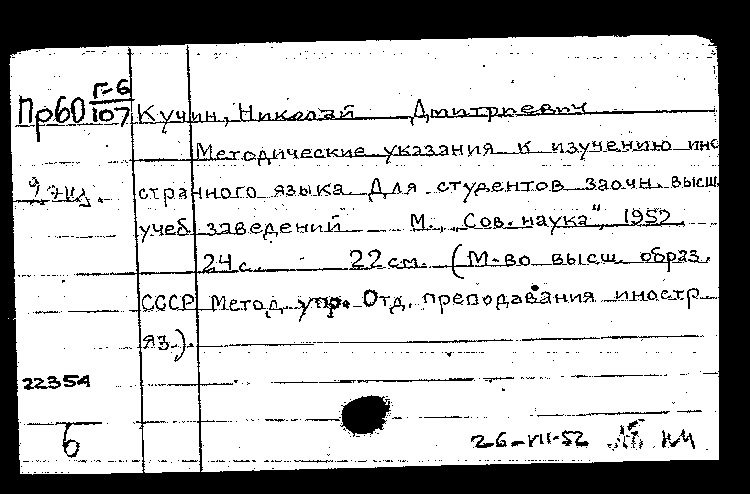 Пр60 Г-6/107 Кучин, Николай Дмитриевич
Методические указания к изучению ино
9 экз. странного языка. Для студентов заочн. высш.
учеб. заведений М., „Сов. наука", 1952.
24 с. 22 см. (М-во высш. образ.
СССР Метод. упр. Отд. преподавания иностр.
яз.).
22354
6
26-VII-52